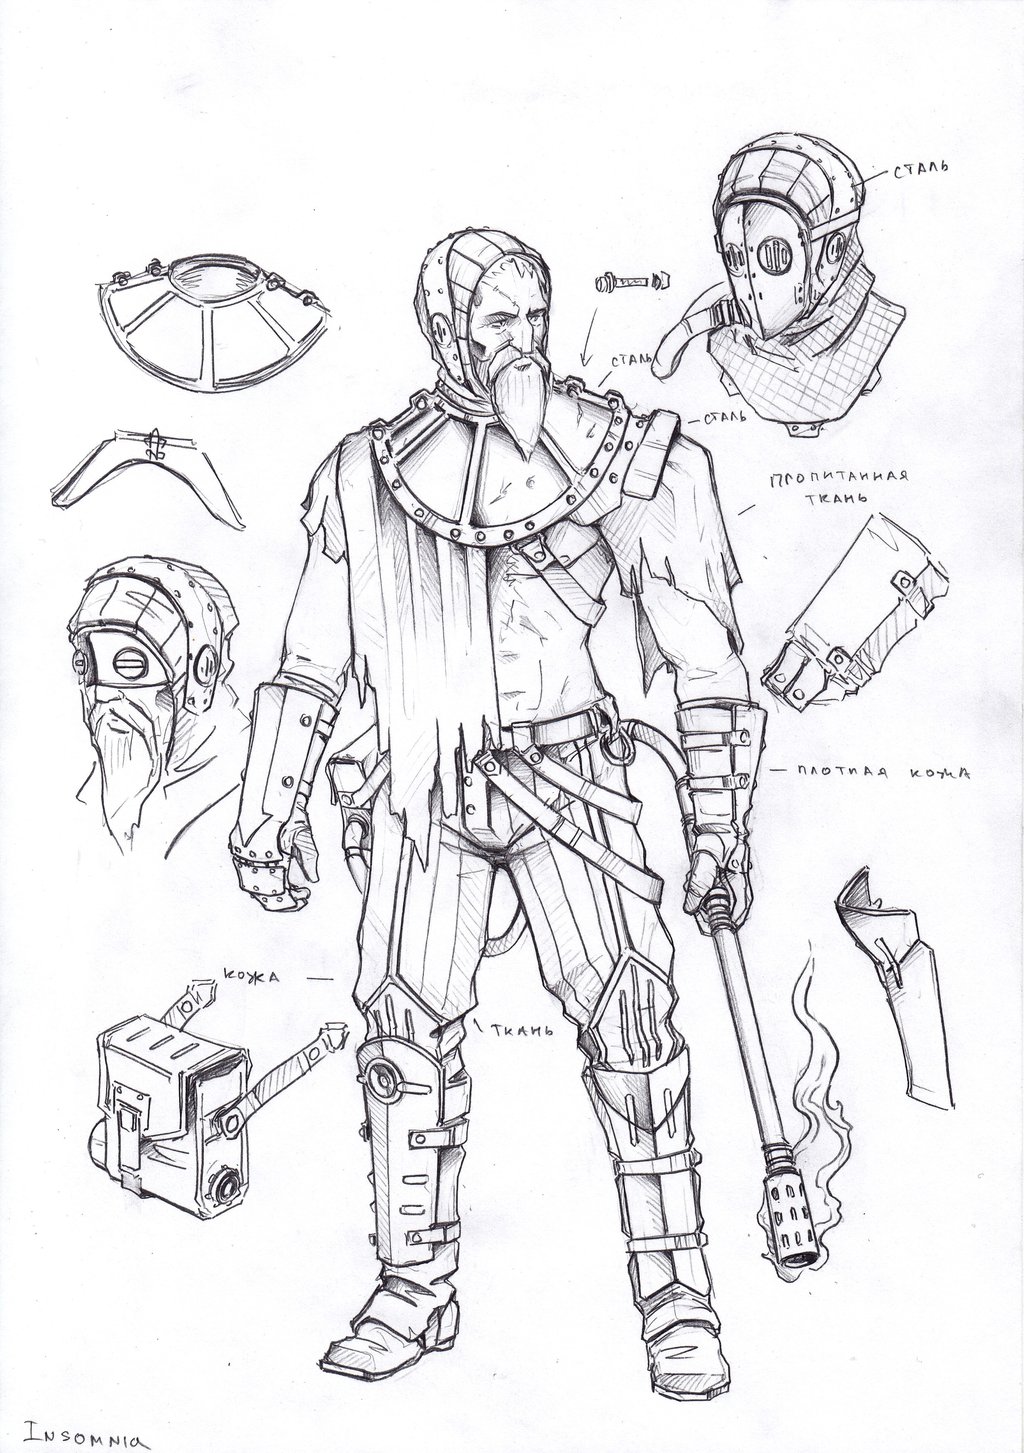 СТАЛЬ
СТАЛЬ
СТАЛЬ
ПРОПИТАННАЯ
ТКАНЬ
ПЛОТНАЯ КОЖА
КОЖА
ТКАНЬ
INSOMNIA